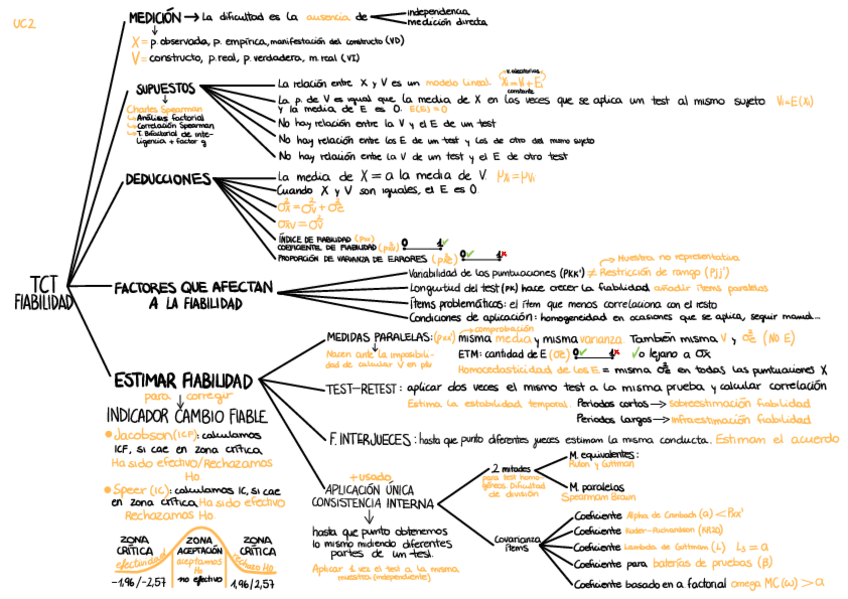 UC2
MEDICIÓN → La dificultad es la ausencia de
independencia
medición directa
X = p. observada, p. empírica, manifestación del constructo (VD)
V = constructo, p. real, p. verdadera, m. real (VI)
SUPUESTOS
Charles Spearman
Análisis factorial
Correlación Spearman
T. Bifactorial de inte-
ligencia + factor g
La relación entre X y V es un modelo lineal. Xi = Vi + Ei
v. aleatorias
constante
La p. de V es igual que la media de X en las veces que se aplica un test al mismo sujeto Vi=E(Xi)
y la media de E es 0. E(Ei)=0
No hay relación entre la V y el E de un test
No hay relación entre los E de un test y los de otro del mismo sujeto
No hay relación entre la V de un test y el E de otro test
DEDUCCIONES
La media de X = a la media de V. μxi = μvi
Cuando X y V son iguales, el E es 0.
σ²x = σ²v + σ²e
σxv = σ²v
ÍNDICE DE FIABILIDAD (ρxv)
COEFICIENTE DE FIABILIDAD (ρ²xv) 0 1 ✓
PROPORCIÓN DE VARIANZA DE ERRORES (ρ²xe) 0 ✓ 1 ×
TCT
FIABILIDAD
FACTORES QUE AFECTAN
A LA FIABILIDAD
Muestra no representativa
Variabilidad de las puntuaciones (ρkk') ≠ Restricción de rango (ρjj')
Longitud del test (ρk) hace crecer la fiabilidad añadir ítems paralelos
Ítems problemáticos: el ítem que menos correlaciona con el resto
Condiciones de aplicación: homogeneidad en ocasiones que se aplica, seguir manual...
ESTIMAR FIABILIDAD
para corregir
INDICADOR CAMBIO FIABLE
Jacobson (ICF): calculamos
ICF, si cae en zona crítica
Ha sido efectivo/Rechazamos
Ho
Speer (IC): calculamos IC, si cae
en zona crítica Ha sido efectivo
Rechazamos Ho.
ZONA CRÍTICA
ZONA ACEPTACIÓN
ZONA CRÍTICA
efectividad
aceptamos
Ho
no efectivo
rechazo Ho
-1,96/-2,57
1,96/2,57
comprobación
MEDIDAS PARALELAS: (ρxx) misma media y misma varianza. También misma V y σ²e (NO E)
Nacen ante la imposibili-
dad de calcular V en ρxv
ETM: cantidad de E (σe) 0 ✓ 1 × ✓o lejano a σx
Homocedasticidad de los E = misma σ²e en todas las puntuaciones X
TEST-RETEST: aplicar dos veces el mismo test a la misma prueba y calcular correlación
Estima la estabilidad temporal. Periodos cortos → sobreestimación fiabilidad
Periodos largos → infraestimación fiabilidad
F. INTERJUECES: hasta que punto diferentes jueces estiman la misma conducta. Estiman el acuerdo
+ usado
APLICACIÓN ÚNICA
CONSISTENCIA INTERNA
hasta que punto obtenemos
lo mismo midiendo diferentes
partes de un test.
Aplicar 1 vez el test a la misma
muestra (independiente)
2 mitades
para test homo-
géneos. Dificultad
de división
M. equivalentes:
Rulon y Guttman
M. paralelas
Spearman Brown
Covarianza
ítems
Coeficiente Alpha de Cronbach (α) < ρxx'
Coeficiente Kuder-Richardson (KR20)
Coeficiente Lambda de Guttman (L) L3 = α
Coeficiente para baterías de pruebas (β)
Coeficiente basado en a factorial omega MC(ω) > α